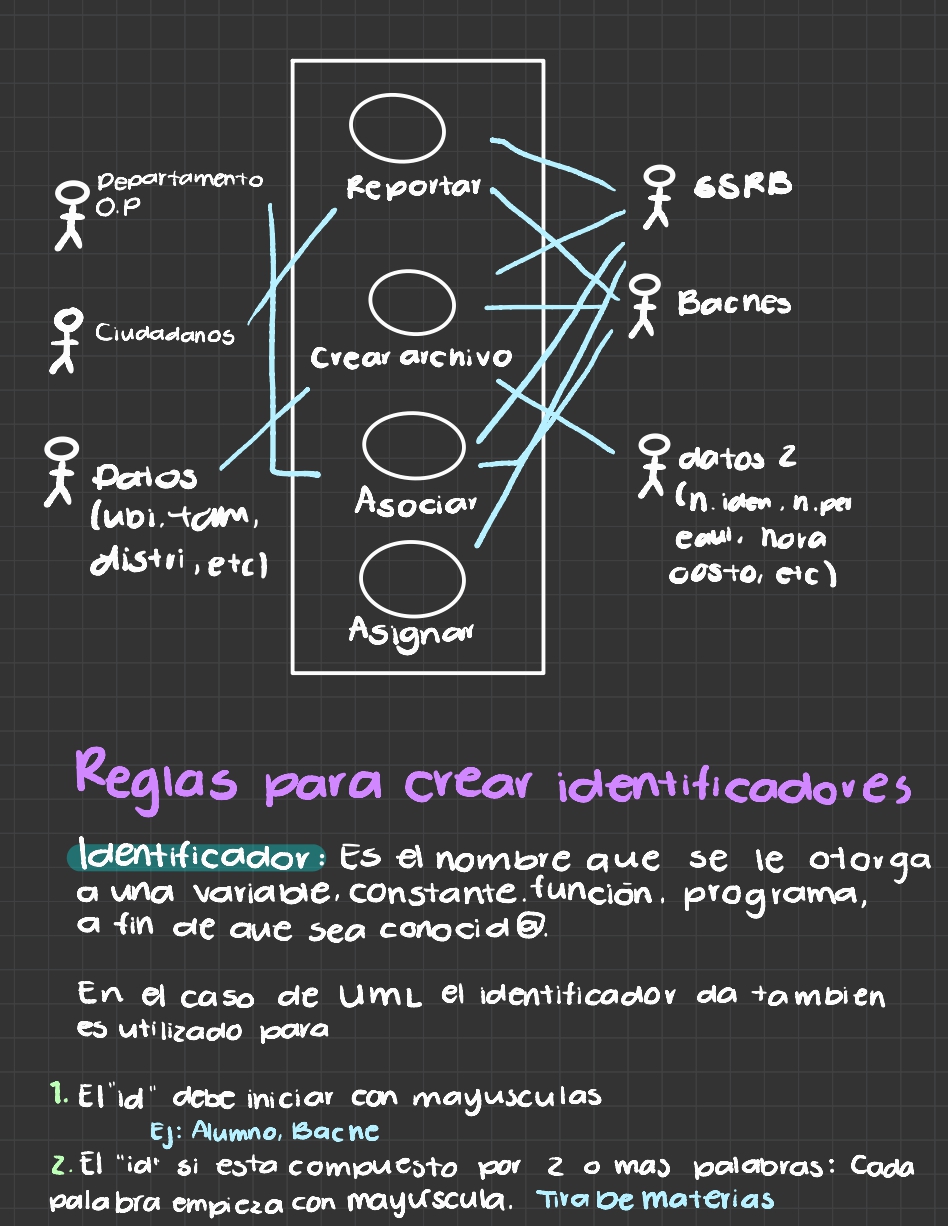 Departamento
O.P
Reportar
SSRB
Ciudadanos
Bacnes
Crear archivo
Datos
(ubi. tam,
distri, etc)
Asociar
datos 2
(n. iden. n. per
equi. hora
costo, etc)
Asignar
Reglas para crear identificadores
Identificador: Es el nombre que se le otorga
a una variable, constante. función. programa,
a fin de que sea conocid@.
En el caso de UML el identificador da tambien
es utilizado para
1. El "id" debe iniciar con mayusculas
Ej: Alumno, Bacne
2. El "id" si esta compuesto por 2 o mas palabras: Cada
palabra empieza con mayuscula. Tira de materias